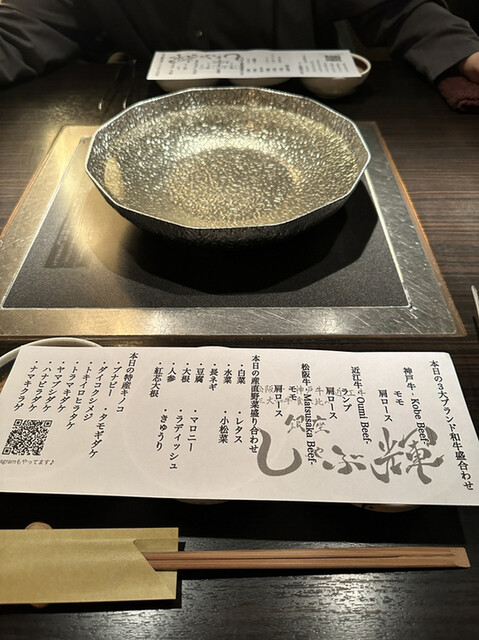 本日の3大ブランド和牛盛合わせ
神戸牛 - Kobe Beef-
モモ
肩ロース
近江牛 - Oumi Beef-
ランプ
肩ロース
松阪牛 - Matsusaka Beef-
モモ
肩ロース
しゃぶ輝
本日の産直野菜盛り合わせ
・白菜 ・レタス
・水菜 ・小松菜
・長ネギ
・豆腐 ・マロニー
・大根 ・ラディッシュ
・人参 ・きゅうり
・紅芯大根
本日の特産キノコ
・ブナピー ・タモギダケ
・ダイコクシメジ
・トキイロヒラタケ
・トラマキダケ
・ヤマブシダケ
・ハナビラダケ
・ナマキクラゲ
agramもやってます♪